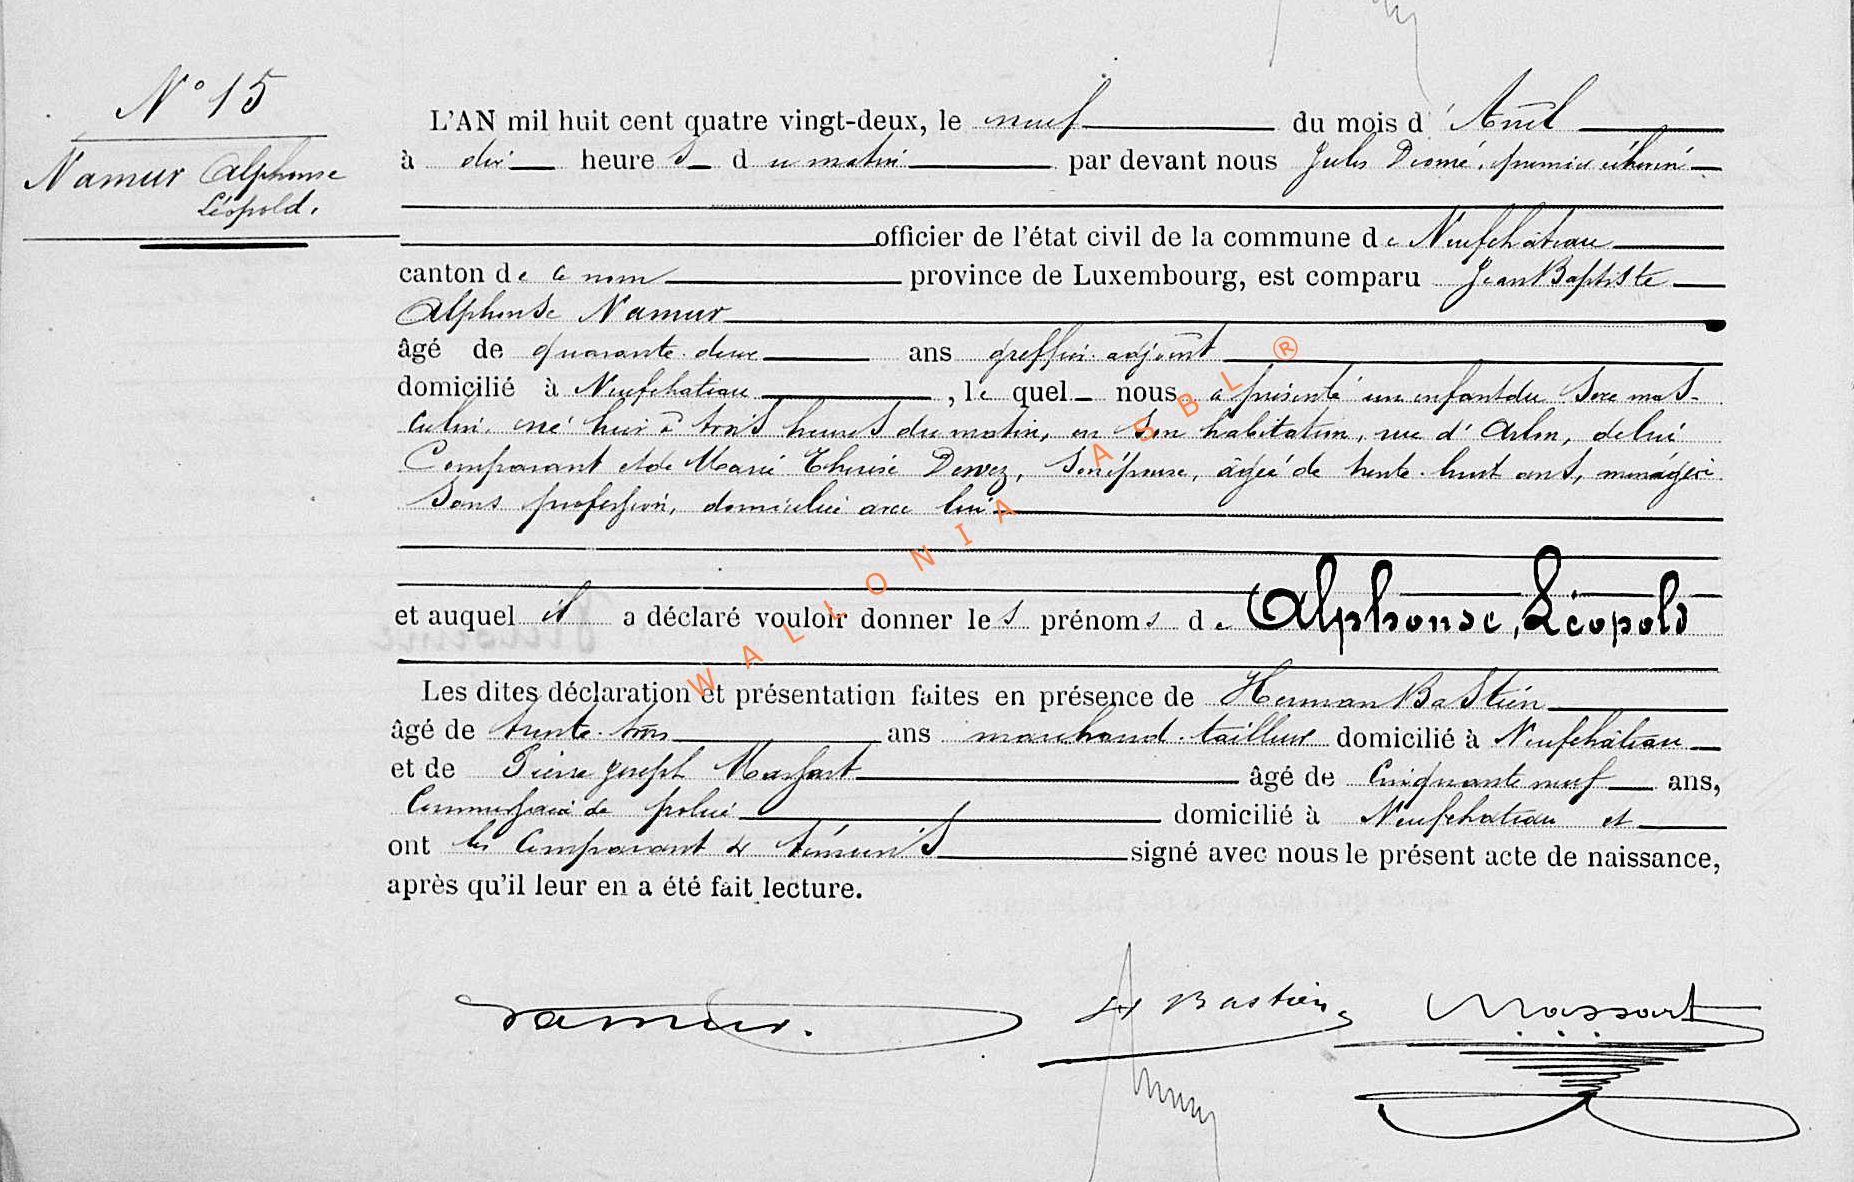 N° 15
Namur Alphonse
Léopold.
L'AN mil huit cent quatre vingt-deux, le neuf du mois d'Avril
à dix heures du matin par devant nous Jules premier échevin
officier de l'état civil de la commune de Neufchâteau
canton de ce nom province de Luxembourg, est comparu Jean Baptiste
Alphonse Namur
âgé de quarante-deux ans greffier adjoint
domicilié à Neufchateau, le quel nous a présenté un enfant du sexe mas-
culin, né hier à trois heures du matin, en son habitation, rue d'Arlon, de lui
Comparant et de Marie Thérèse Dervez, son épouse, âgée de trente-huit ans, ménagère
sans profession, domiciliée avec lui
et auquel il a déclaré vouloir donner les prénoms de Alphonse, Léopold
Les dites déclaration et présentation faites en présence de Herman Bastien
âgé de trente-trois ans marchand-tailleur domicilié à Neufchâteau
et de Pierre Joseph Massart âgé de Cinquante neuf ans,
Commissaire de police domicilié à Neufchateau et
ont les Comparant & témoins signé avec nous le présent acte de naissance,
après qu'il leur en a été fait lecture.
Namur. H Bastien Massart
WALLONIA ASBL ®